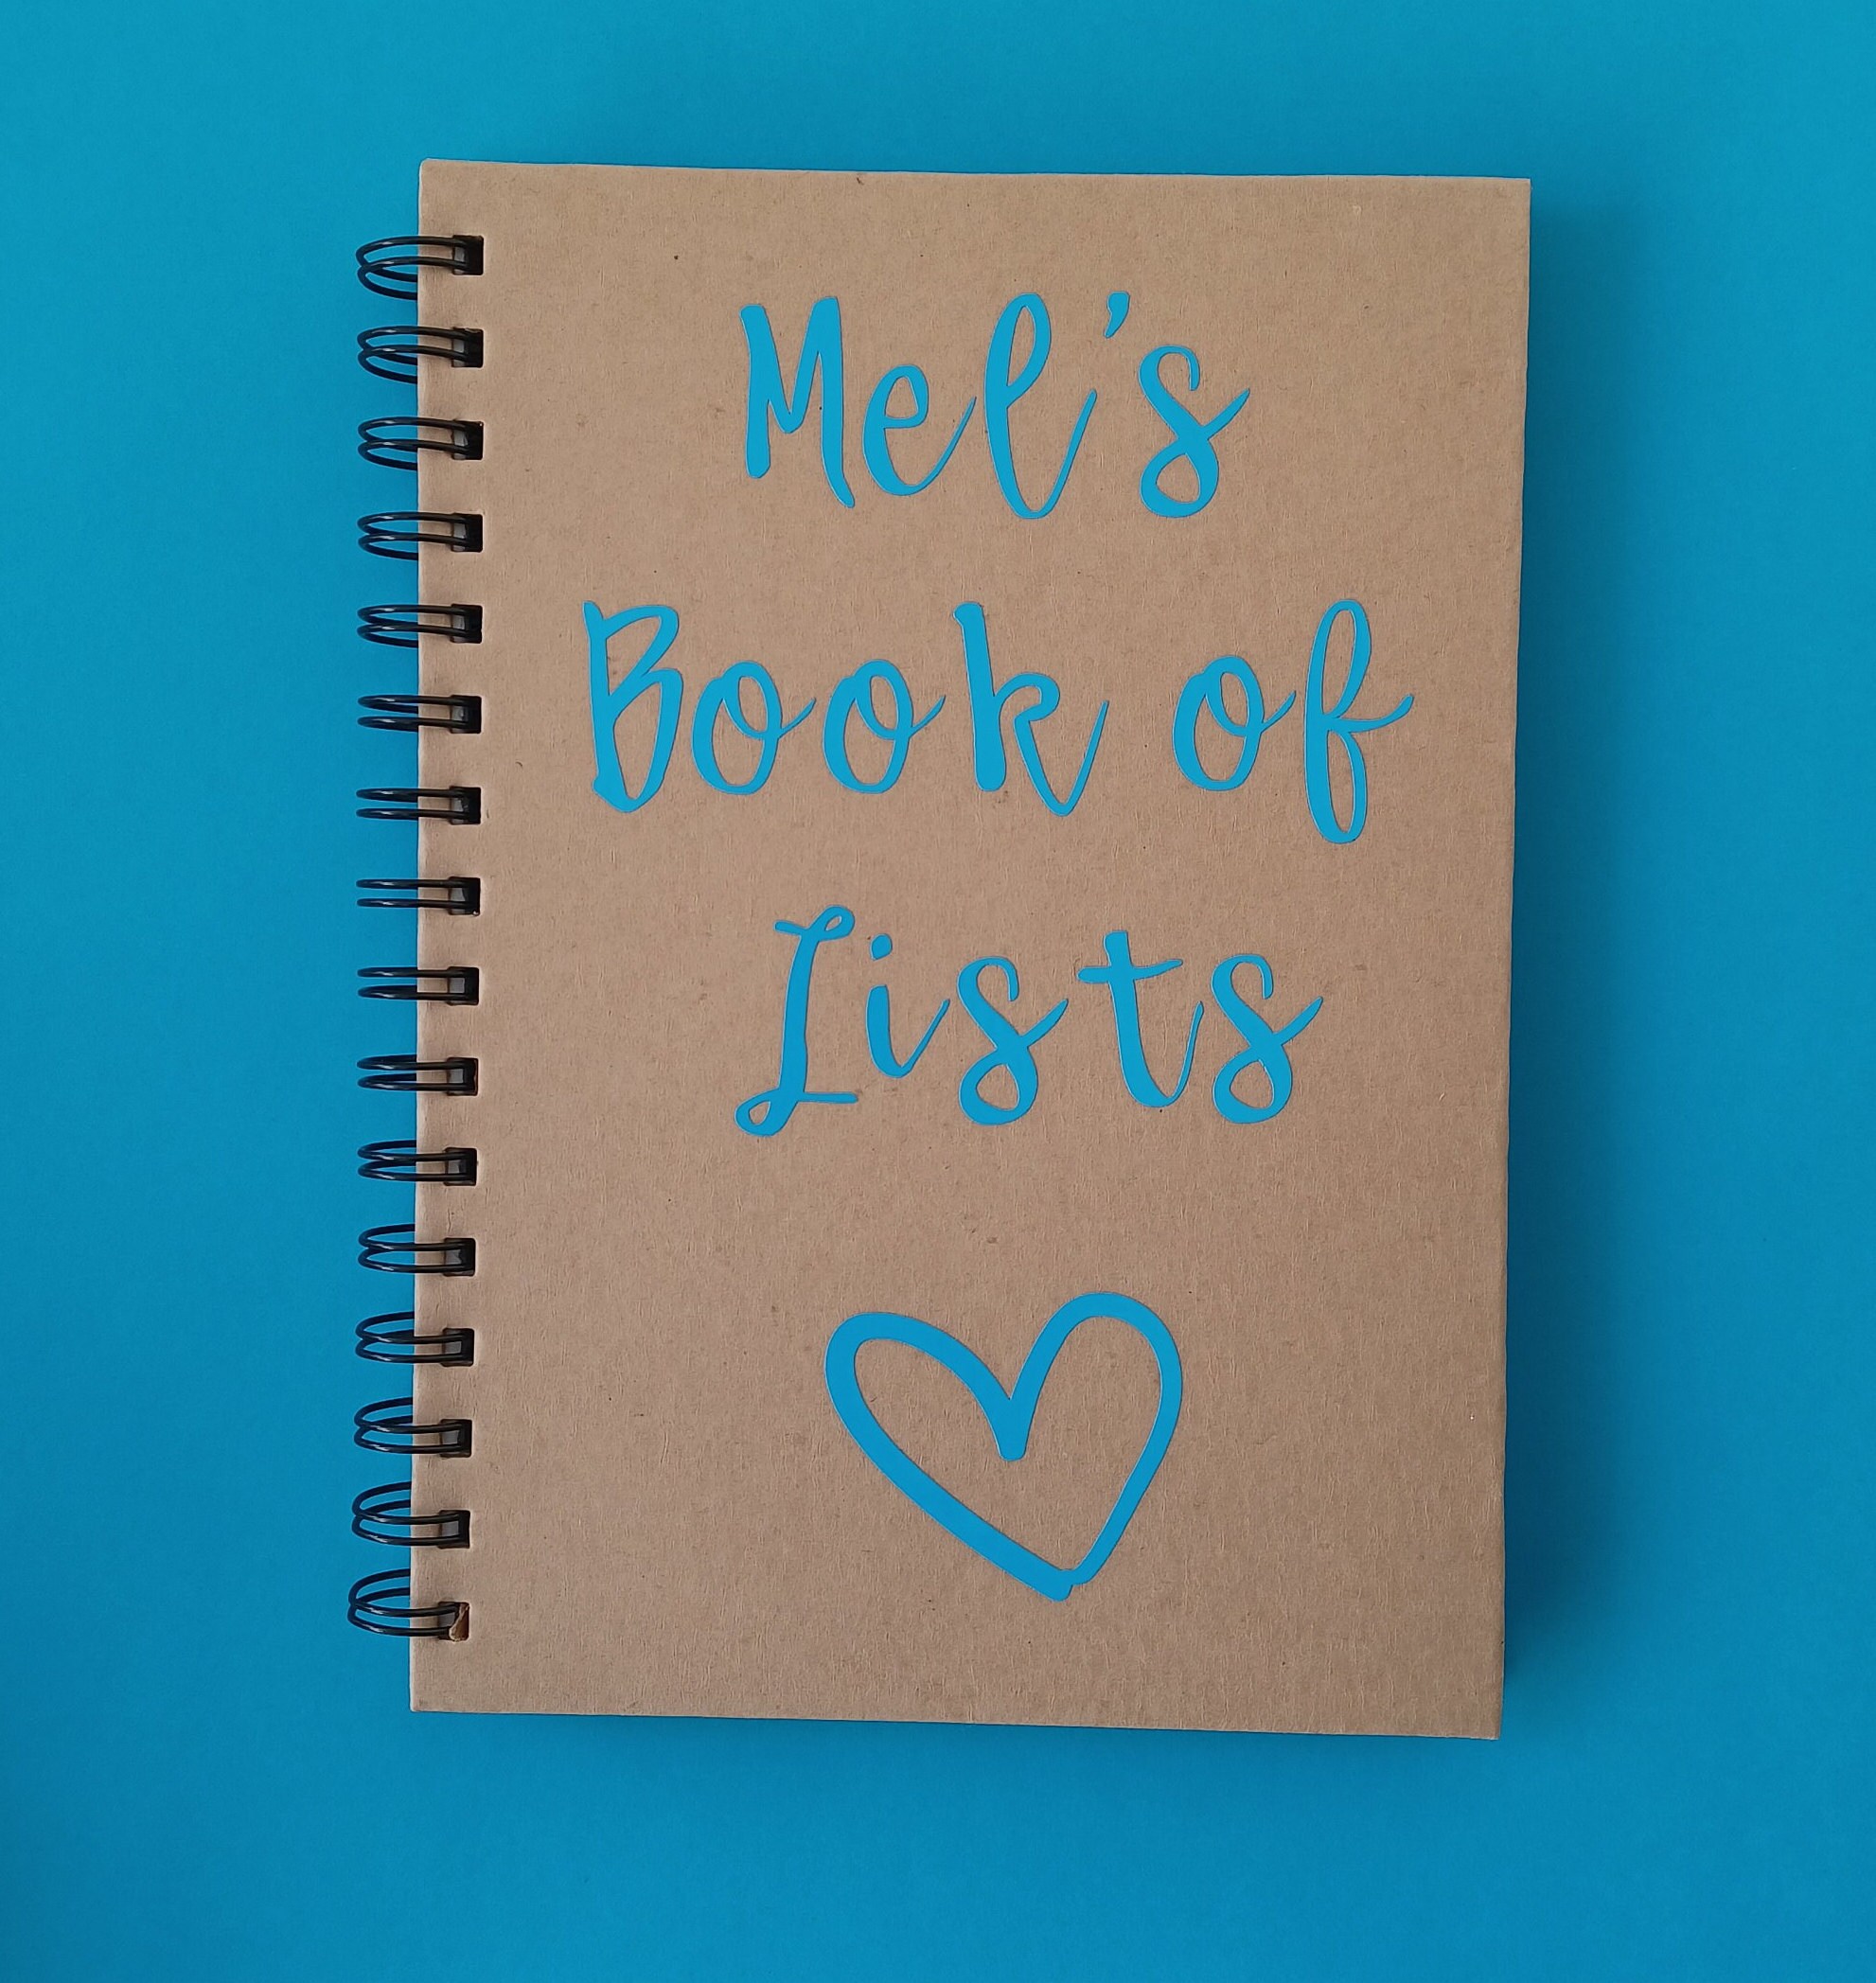 Mel's
Book of
Lists